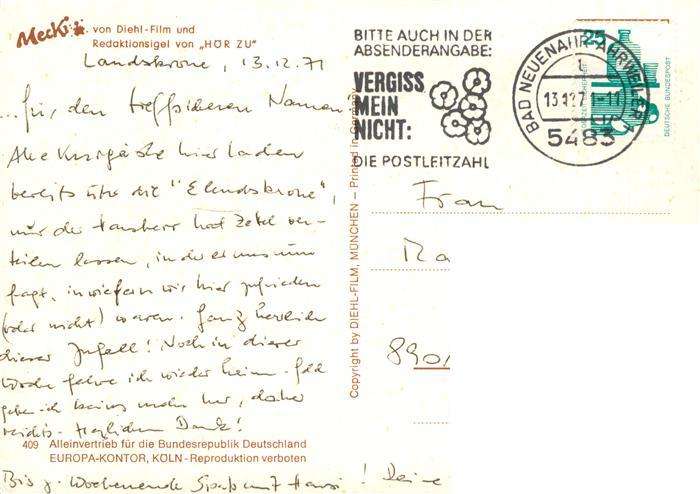 Mecki von Diehl-Film und
Redaktionsigel von „HÖR ZU"
Landskrone, 13.12.71
...für den treffsicheren Namen!
Alle Kurgäste hier lachen
bereits über die "Elendskrone",
nur der Hausherr hat Zettel ver-
teilen lassen, in der er uns um
fragt, inwiefern wir hier zufrieden
(oder nicht) waren. Ganz herrlich
dieser Zufall! Noch in dieser
Woche fahre ich wieder heim. Geld
gebe ich keins mehr her, daher
reicht's. Herzlichen Dank!
409 Alleinvertrieb für die Bundesrepublik Deutschland
EUROPA-KONTOR, KÖLN - Reproduktion verboten
Bis z. Wochenende Spaß mit Hansi! Deine
Copyright by DIEHL-FILM, MÜNCHEN – Printed in Germany
BITTE AUCH IN DER
ABSENDERANGABE:
VERGISS
MEIN
NICHT:
DIE POSTLEITZAHL
BAD NEUENAHR-AHRWEILER 1
13.12.71-17
5483
25
DEUTSCHE BUNDESPOST
Frau
Ma
890